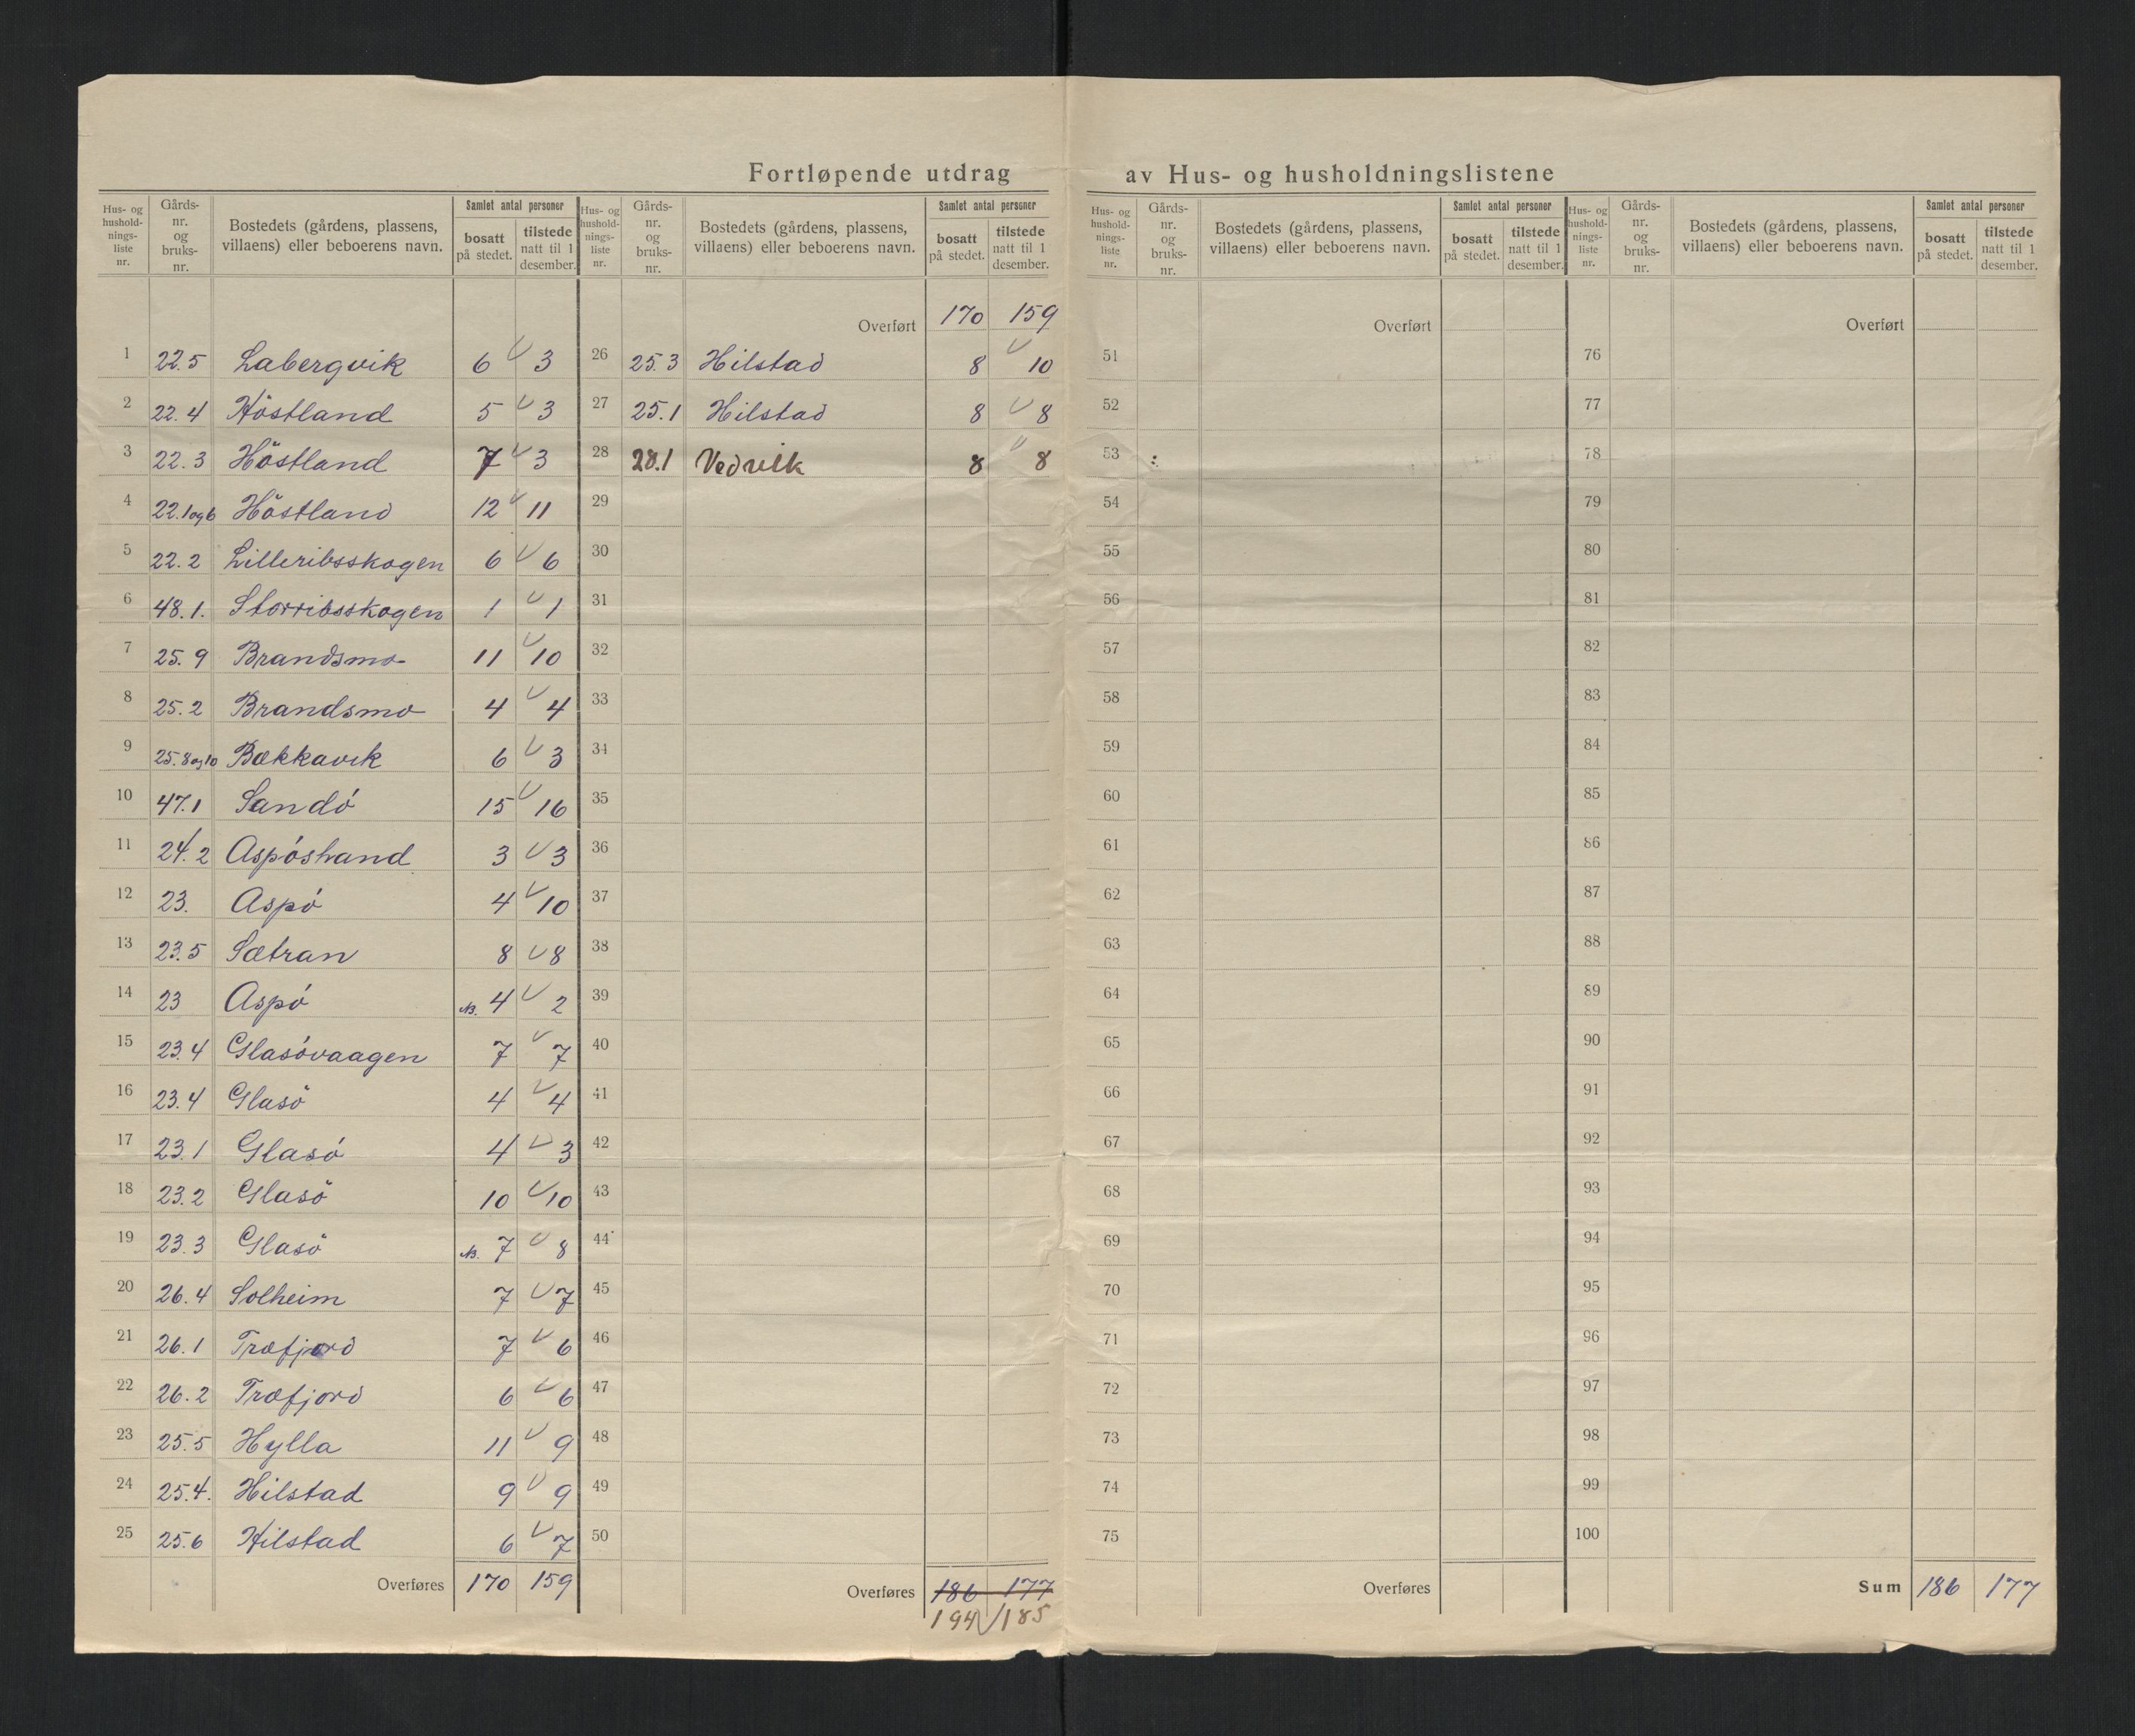 Fortløpende utdrag av Hus- og husholdningslistene
Hus- og hushold- nings- liste nr. | Gårds- nr. og bruks- nr. | Bostedets (gårdens, plassens, villaens) eller beboerens navn. | Samlet antal personer | bosatt på stedet. | tilstede natt til 1 desember.
1 22.5 Labergvik 6 3
2 22.4 Höstland 5 3
3 22.3 Höstland 7 3
4 22.1 og 6 Höstland 12 11
5 22.2 Lilleribsskogen 6 6
6 48.1. Storribsskogen 1 1
7 25.9 Brandsmo 11 10
8 25.2 Brandsmo 4 4
9 25.8 og 10 Bækkavik 6 3
10 47.1 Sandó 15 16
11 24.2 Aspóstrand 3 3
12 23. Aspó 4 10
13 23.5 Sætran 8 8
14 23 Aspó N3. 4 2
15 23.4 Glasóvaagen 7 7
16 23.4 Glasö 4 4
17 23.1 Glasó 4 3
18 23.2 Glasö 10 10
19 23.3 Glasö N3. 7 8
20 26.4 Solheim 7 7
21 26.1 Træfjord 7 6
22 26.2 Træfjord 6 6
23 25.5 Hylla 11 9
24 25.4. Hilstad 9 9
25 25.6 Hilstad 6 7
Overføres 170 159
Hus- og hushold- nings- liste nr. | Gårds- nr. og bruks- nr. | Bostedets (gårdens, plassens, villaens) eller beboerens navn. | Samlet antal personer | bosatt på stedet. | tilstede natt til 1 desember.
Overført 170 159
26 25.3 Hilstad 8 10
27 25.1 Hilstad 8 8
28 28.1 Vedvik 8 8
29
30
31
32
33
34
35
36
37
38
39
40
41
42
43
44
45
46
47
48
49
50
Overføres 186 177
194 185
Hus- og hushold- nings- liste nr. | Gårds- nr. og bruks- nr. | Bostedets (gårdens, plassens, villaens) eller beboerens navn. | Samlet antal personer | bosatt på stedet. | tilstede natt til 1 desember.
Overført
51
52
53
54
55
56
57
58
59
60
61
62
63
64
65
66
67
68
69
70
71
72
73
74
75
Overføres
Hus- og hushold- nings- liste nr. | Gårds- nr. og bruks- nr. | Bostedets (gårdens, plassens, villaens) eller beboerens navn. | Samlet antal personer | bosatt på stedet. | tilstede natt til 1 desember.
Overført
76
77
78
79
80
81
82
83
84
85
86
87
88
89
90
91
92
93
94
95
96
97
98
99
100
Sum 186 177